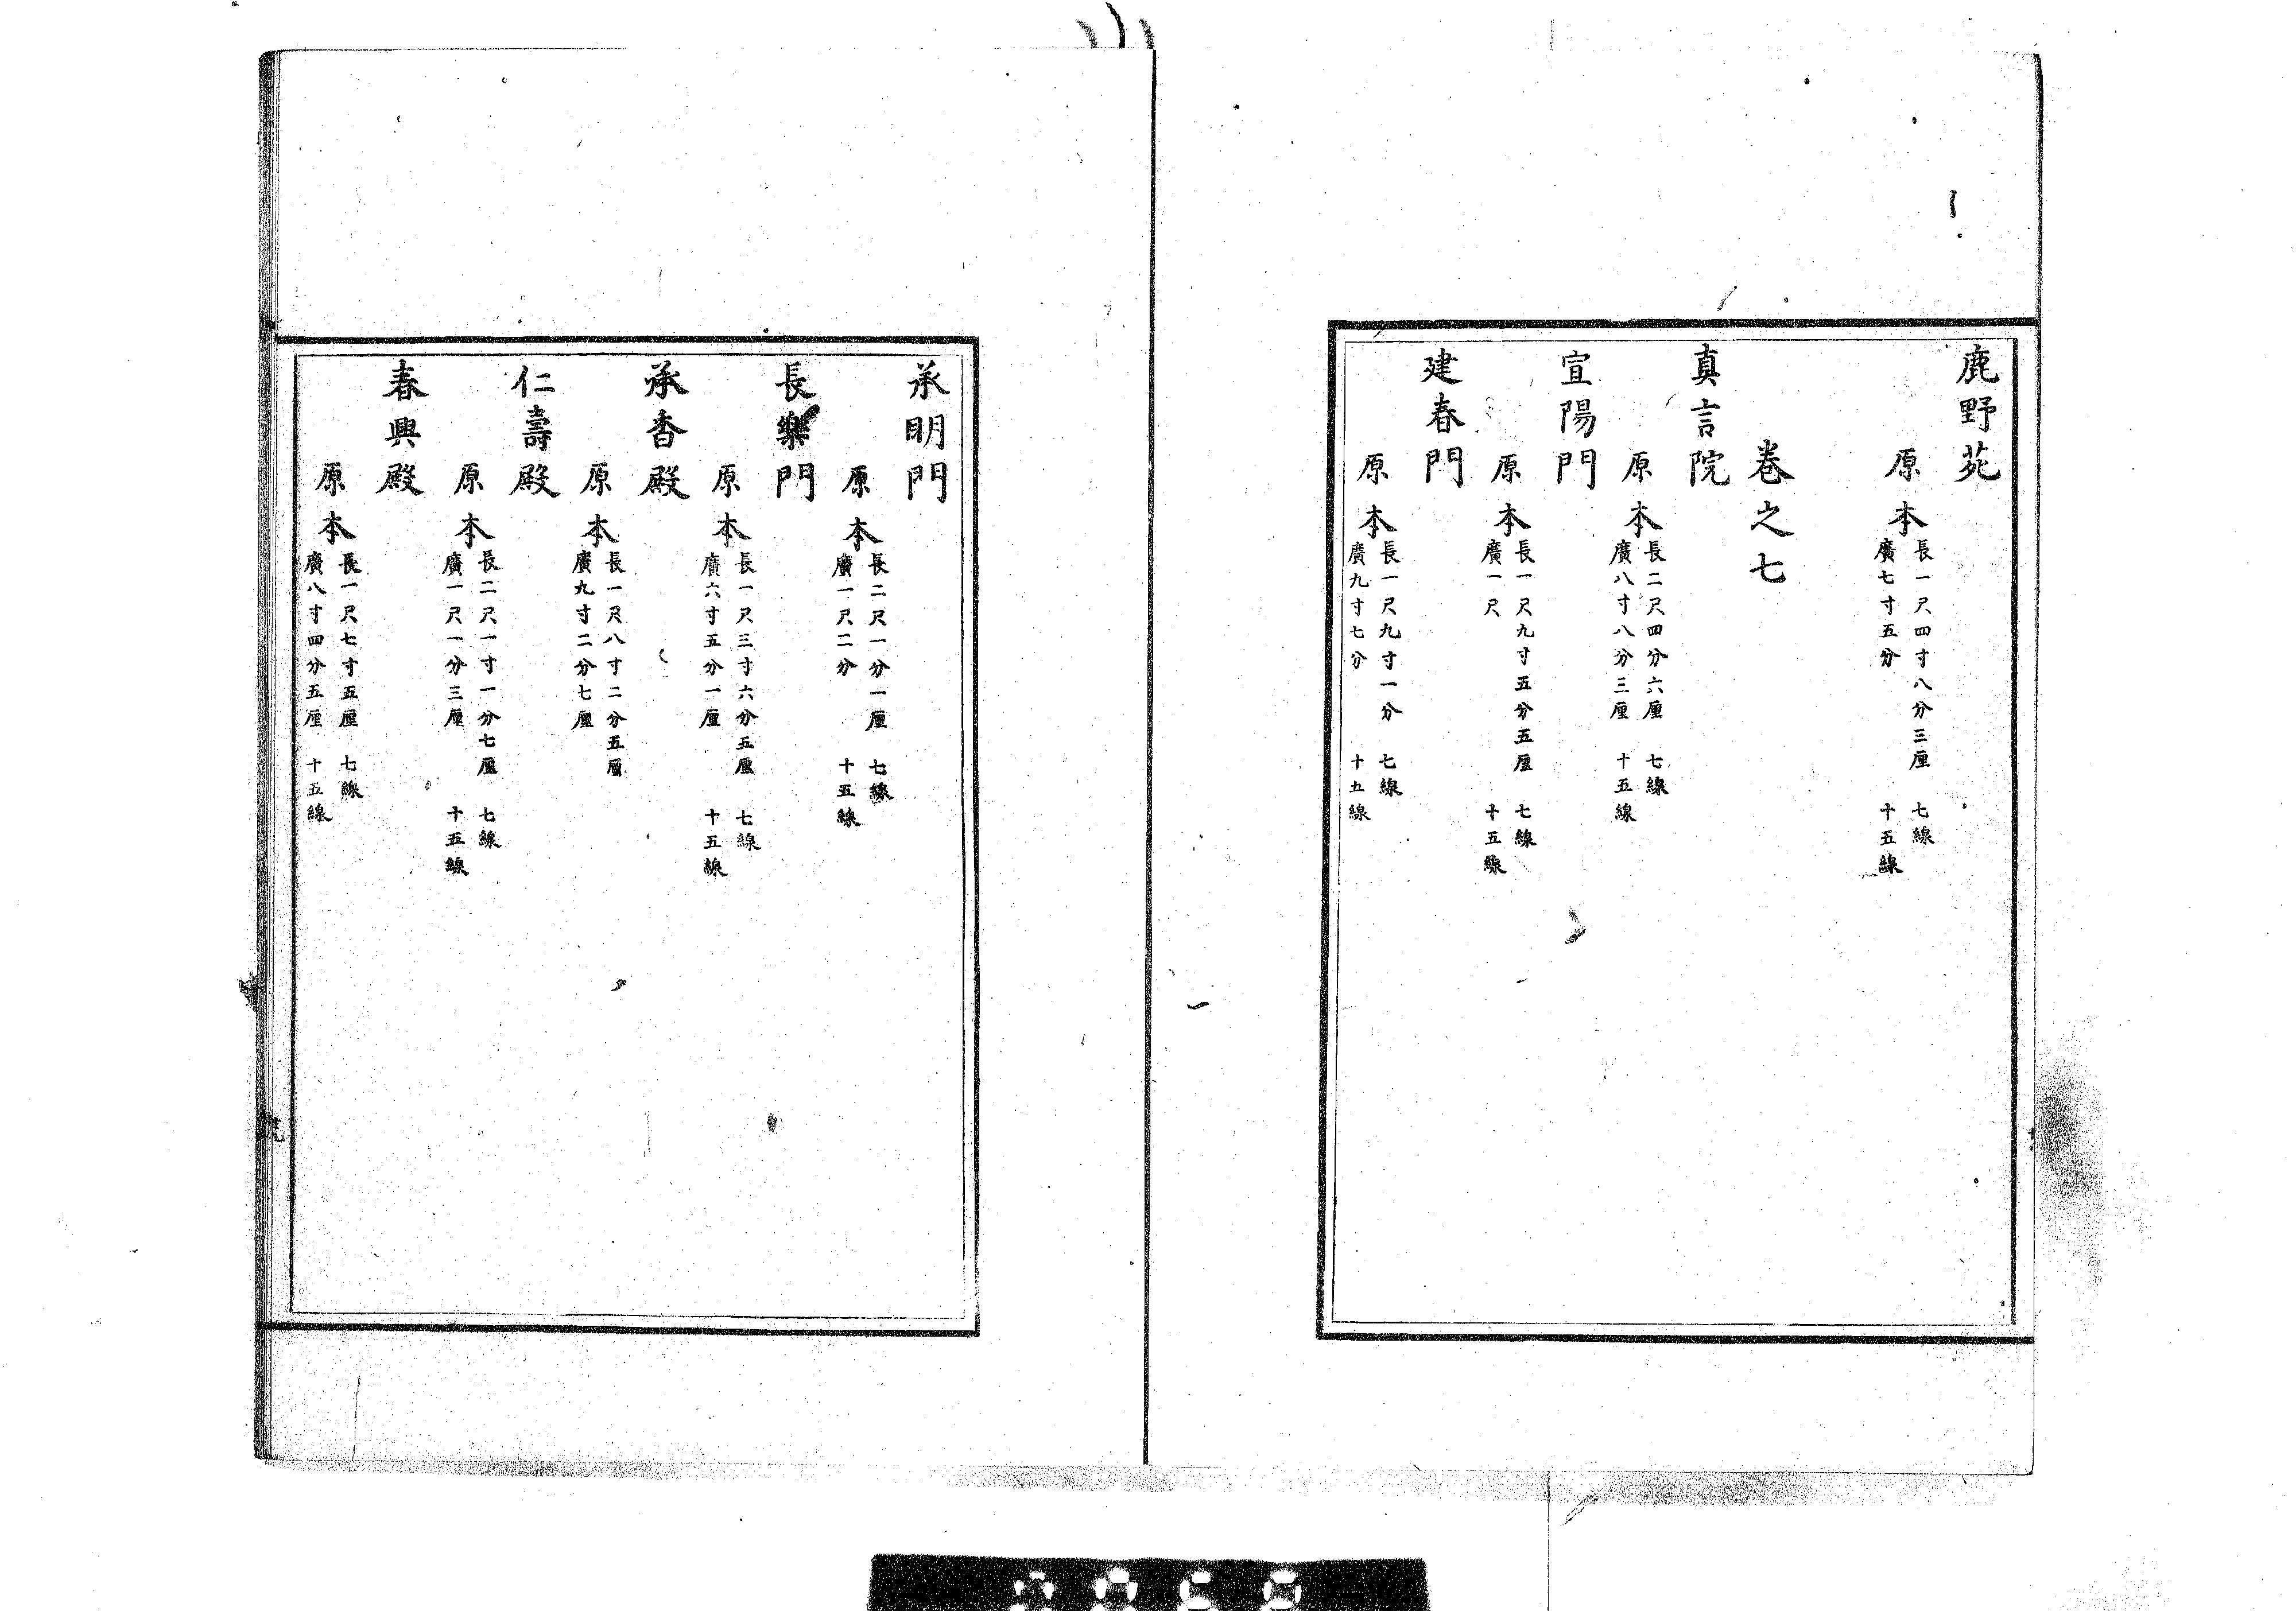 鹿野苑
原本
長一尺四寸八分三厘　七線
廣七寸五分　十五線
巻之七
真言院
原本
長二尺四分六厘　七線
廣八寸八分三厘　十五線
宣陽門
原本
長一尺九寸五分五厘　七線
廣一尺　十五線
建春門
原本
長一尺九寸一分　七線
廣九寸七分　十五線
承明門
原本
長二尺一分一厘　七線
廣一尺二分　十五線
長樂門
原本
長一尺三寸六分五厘　七線
廣六寸五分一厘　十五線
承香殿
原本
長一尺八寸二分五厘
廣九寸二分七厘
仁壽殿
原本
長二尺一寸一分七厘　七線
廣一尺一分三厘　十五線
春興殿
原本
長一尺七寸五厘　七線
廣八寸四分五厘　十五線